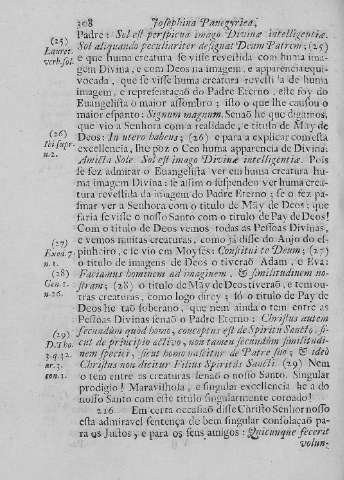 308 Josephina Panegyrica,
Padre: Sol est perspicua imago Divinæ intelligentiæ.
(25) Sol aliquando peculiariter designat Deum Patrem; (25)
Lauret. e que huma creatura se visse revestida com huma ima-
verb. sol. gem Divina, e com Deos na imagem, e apparencia equi-
vocada, que se visse huma creatura revestida de huma
imagem, e representaçaõ do Padre Eterno, este foy do
Euangelista o mayor assombro; isso o que lhe causou o
mayor espanto: Signum magnum. Senaõ he que digamos,
que vio a Senhora com a realidade, e titulo de May de
(26) Deos: In utero habens; (26) e para a explicar com esta
Ibi supr. excellencia, lhe poz o Ceo huma apparencia de Divina:
n. 2. Amicta Sole. Sol est imago Divinæ intelligentiæ. Pois
se fez admirar o Euangelista ver em huma creatura hu-
ma imagem Divina: se assim o suspenden ver huma crea-
tura revestida da imagem do Padre Eterno; se o fez pas-
mar ver a Senhora com o titulo de May de Deos; que
faria se visse o nosso Santo com o titulo de Pay de Deos!
Com o titulo de Deos vemos todas as Pessoas Divinas,
e vemos muitas creaturas, como já disse do Anjo do es-
(27) pinheiro, e se vio em Moyses: Constitui te Deum; (27)
Exod. 7. o titulo de imagens de Deos o tiveraõ Adam, e Eva:
n. 1.
(28) Faciamus hominem ad imaginem, & similitudinem no-
Gen. 1. stram; (28) o titulo de May de Deos tiveraõ, e tem ou-
n. 26. tras creaturas, como logo direy; só o titulo de Pay de
Deos he taõ soberano, que nem ainda o tem entre as
Pessoas Divinas senaõ o Padre Eterno: Christus autem
(29) secundùm quod homo, conceptus est de Spiritu Sancto, si-
D. Tho. cut de principio activo, non tamen secundùm similitudi-
3. q. 32. nem speciei, sicut homo nascitur de Patre suo; & ideò
ar. 3. Christus non dicitur Filius Spiritûs Sancti. (29) Nem
con. 1. o tem entre as creaturas senaõ o nosso Santo. Singular
prodigio! Maravilhosa, e singular excellencia he a do
nosso Santo com este titulo singularmente coroado!
216 Em certa occasiaõ disse Christo Senhor nosso
esta admiravel sentença de bem singular consolaçaõ pa-
ra os Justos, e para os seus amigos: Quicunque fecerit
volun-